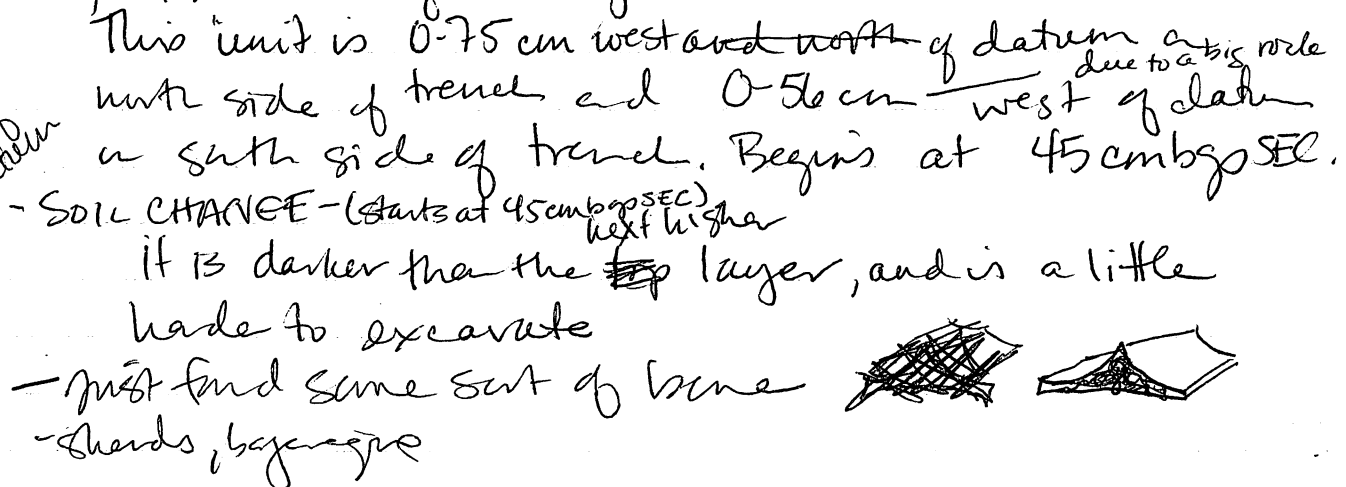 This unit is 0-75 cm west and north of datum on
due to a big rock
north side of trench and 0-56 cm west of datum
on south side of trench. Begins at 45 cmbgs SEC.
- SOIL CHANGE - (starts at 45 cmbgs SEC)
next higher
it is darker than the top layer, and is a little
harder to excavate
- just found some sort of bone
- sherds, bajareque